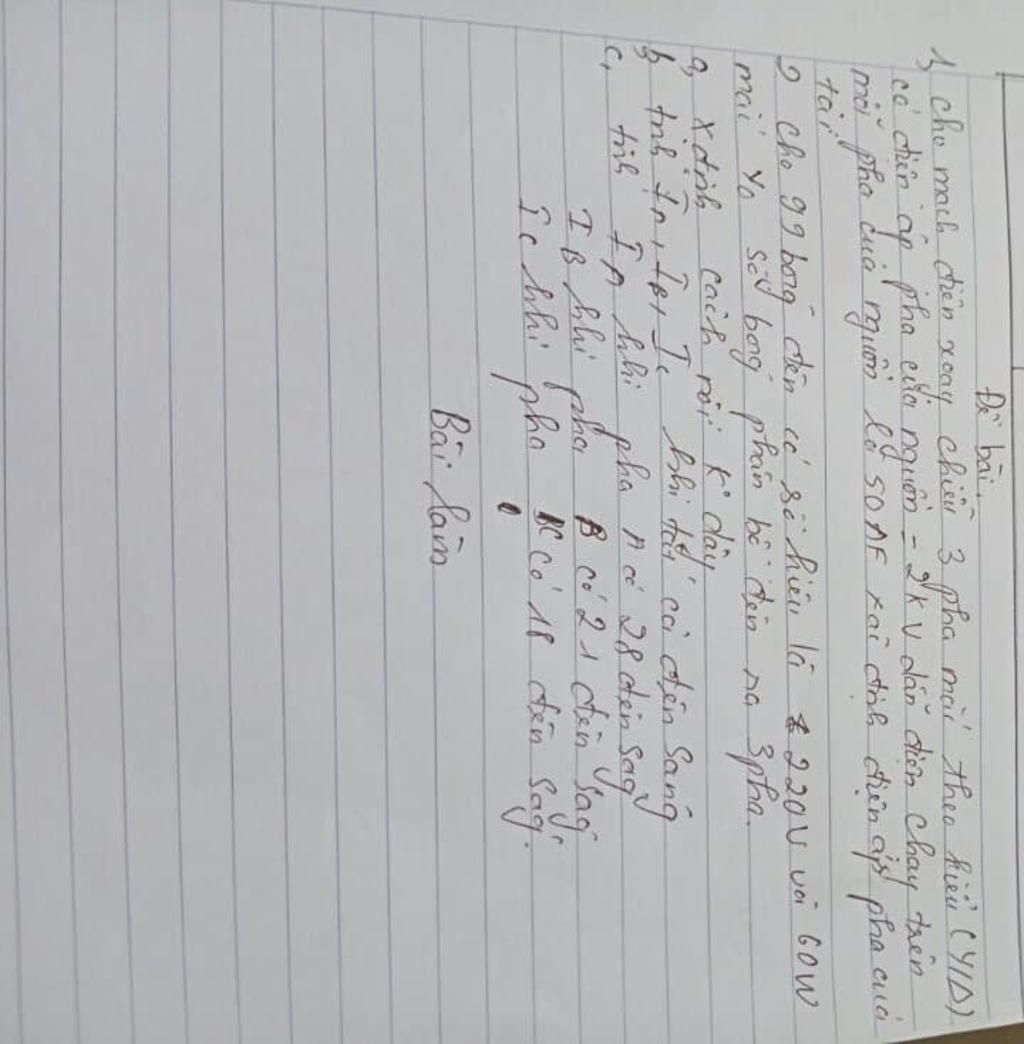 Đề bài.
1, cho mạch điện xoay chiều 3 pha mắc theo kiểu (Y/Δ)
có điện áp pha của nguồn = 2kV dẫn điện chạy trên
mỗi pha của nguồn là 50A xác định điện áp pha của
tải.
2 cho 99 bóng đèn có số hiệu là 220V với 60W
mắc Yo số bóng phân bố đèn ra 3 pha.
a, xđịnh cách nối k° dây
b, tính IA, IB, IC khi tất cả đèn sáng
c, tính IA khi pha A có 28 đèn ság
IB khi pha B có 21 đèn ság
IC khi pha C có 18 đèn ság.
Bài làm